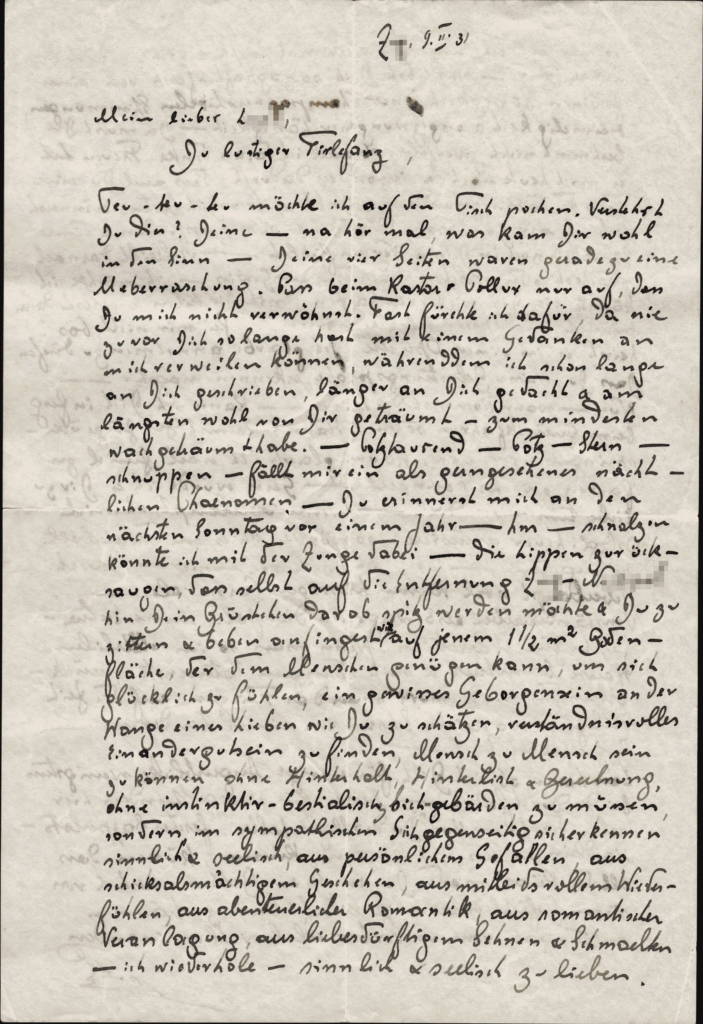 9.II.31
Mein lieber
Du lustiger Firlefanz,
Teu - teu - teu möchte ich auf den Tisch pochen. Verstehst
Du die? Deine — na hör mal, was kam Dir wohl
in den Sinn — Deine vier Seiten waren geradezu eine
Ueberraschung. Pass beim Kastor & Pollux nur auf, dass
Du mich nicht verwöhnst. Fast fürchte ich dafür, da nie
zuvor Dich solange hast mit einem Gedanken an
mich verweilen können, währenddem ich schon lange
an Dich geschrieben, länger an Dich gedacht & am
längsten wohl von Dir geträumt – zum mindesten
wachgeträumt habe. — Potztausend — Potz — Stern —
schnuppen — fällt mir ein als gerngesehenes nächt-
lichen Phaenomen — Du erinnerst mich an den
nächsten Sonntag vor einem Jahr — hm — schnalzen
könnte ich mit der Zunge dabei — die Lippen zurück-
saugen, dass selbst auf die Entfernung Z - N
hin Dein Brüstchen darob spitz werden möchte & Du zu
zittern & beben anfingest wie auf jenem 1 1/2 m² Boden-
fläche, der dem Menschen genügen kann, um sich
glücklich zu fühlen, ein gewisses Geborgensein an der
Wange eines Lieben wie Du zu schätzen, verständnisvolles
Einandergutsein zu finden, Mensch zu Mensch sein
zu können ohne Hinterhalt, Hinterlist & Berechnung,
ohne instinktiv-bestialisch sich gebärden zu müssen,
sondern im sympathischen Sichgegenseitigsicherkennen
sinnlich & seelisch, aus persönlichem Gefallen, aus
schicksalsmächtigem Geschehen, aus mitleidsvollem
fühlen, aus abenteuerlicher Romantik, aus romantischer
Veranlagung, aus liebesdürftigem Sehnen & Schmachten
— ich wiederhole — sinnlich & seelisch zu lieben.